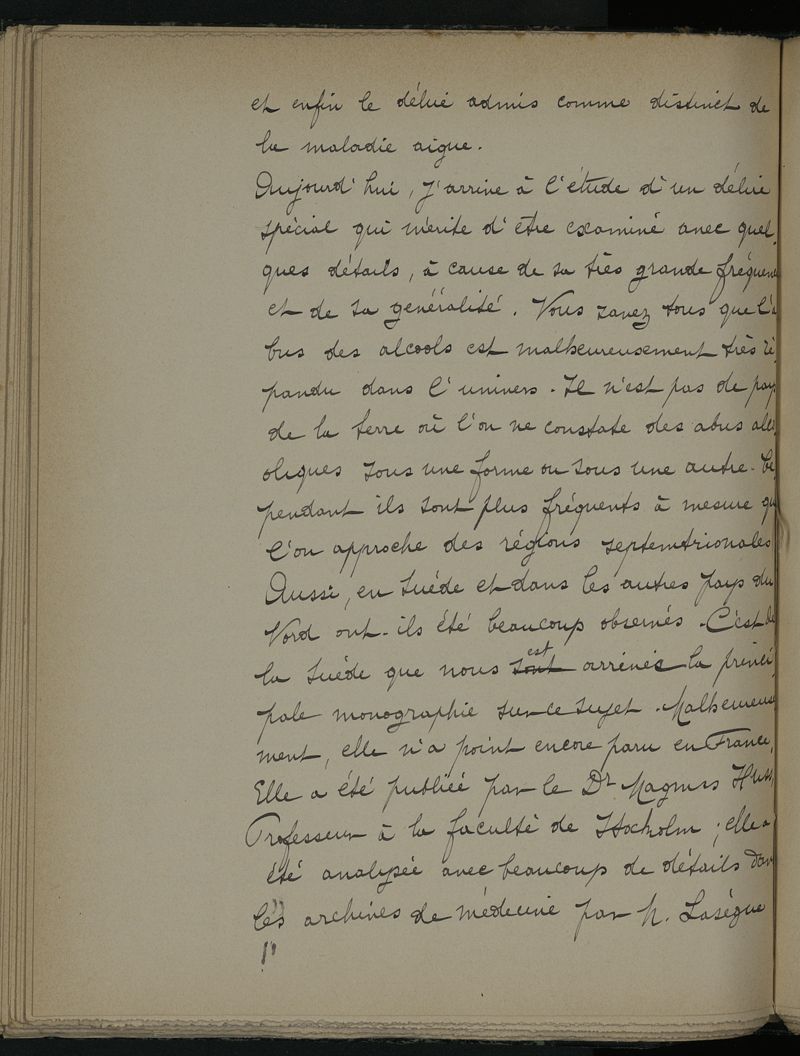 et enfin le délire admis comme distinct de
la maladie aigue.
Aujourd'hui, j'arrive à l'étude d'un délire
spécial qui mérite d'être examiné avec quel-
ques détails, à cause de sa très grande fréquence
et de sa généralité. Vous savez tous que l'a
bus des alcools est malheureusement très ré
pandu dans l'univers. Il n'est pas de pays
de la terre où l'on ne constate des abus alco
oliques sous une forme ou sous une autre. Ce
pendant ils sont plus fréquents à mesure qu
l'on approche des régions septemtrionales
Aussi, en Suède et dans les autres pays du
Nord ont-ils été beaucoup observés. C'est de
la Suède que nous sont est arrivée la princi
pale monographie sur ce sujet. Malheureuse
ment, elle n'a point encore paru en France.
Elle a été publiée par le Dr Magnus Huss,
Professeur à la faculté de Stockolm ; elle a
été analysée avec beaucoup de détails dans
les archives de médecine par M. Lasègue